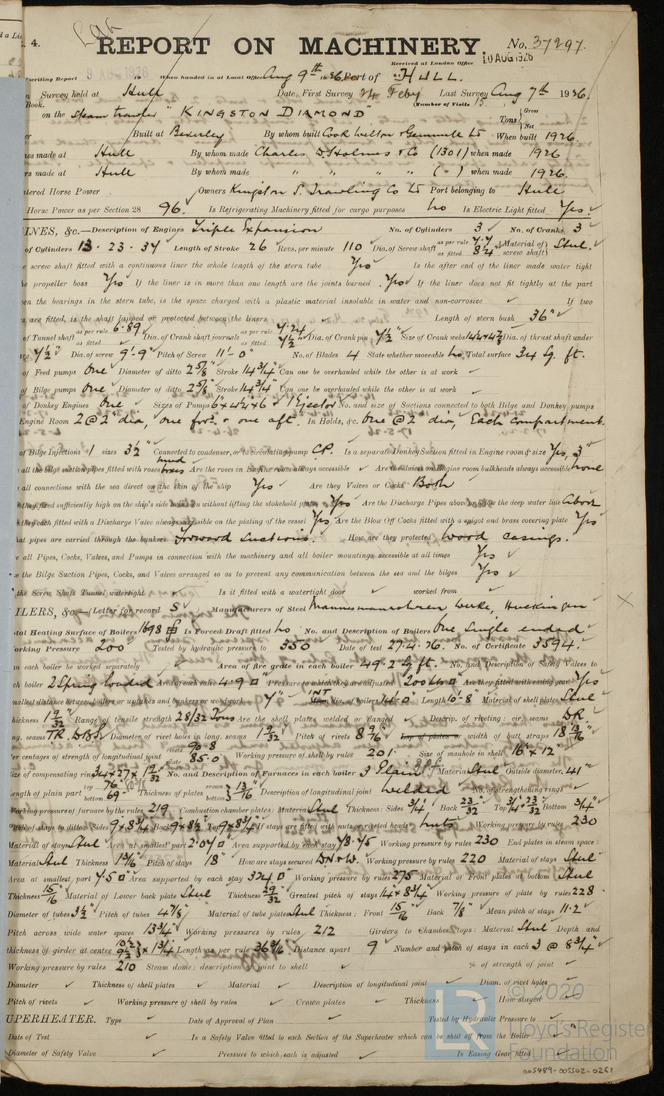 4. REPORT ON MACHINERY. No. 37297.
Received at London Office 10 AUG 1926
When handed in at Local Office Aug 9th 1926 Port of HULL.
Survey held at Hull Date, First Survey 24 Feby Last Survey Aug 7th 1926.
Number of Visits 15
on the Steam trawler "KINGSTON DIAMOND" Tons Gross Net
Built at Beverley By whom built Cook Welton & Gemmell Ld When built 1926.
made at Hull By whom made Charles D Holmes & Co (1301) when made 1926
made at Hull By whom made " " " " (-) when made 1926.
Horse Power Owners Kingston S. Trawling Co Ld Port belonging to Hull
Horse Power as per Section 28 96. Is Refrigerating Machinery fitted for cargo purposes no Is Electric Light fitted Yes.
INES, &c.—Description of Engines Triple Expansion No. of Cylinders 3 No. of Cranks 3
of Cylinders 13 - 23 - 37 Length of Stroke 26 Revs. per minute 110 Dia. of Screw shaft as per rule as fitted Material of screw shaft Steel
screw shaft fitted with a continuous liner the whole length of the stern tube Yes Is the after end of the liner made water tight
propeller boss Yes If the liner is in more than one length are the joints burned Yes If the liner does not fit tightly at the part
the bearings in the stern tube, is the space charged with a plastic material insoluble in water and non-corrosive If two
are fitted, is the shaft lapped or protected between the liners Length of stern bush 36"
of Tunnel shaft as per rule 6.89 Dia. of Crank shaft journals as per rule 7.24 as fitted 7½" Dia. of Crank pin 7½" Size of Crank webs Dia. of thrust shaft under
7½" Dia. of screw 9'-9" Pitch of Screw 11'-0" No. of Blades 4 State whether moveable no Total surface 34 sq. ft.
of Feed pumps one Diameter of ditto 2⅝" Stroke 14¾" Can one be overhauled while the other is at work
of Bilge pumps one Diameter of ditto 2⅝" Stroke 14¾" Can one be overhauled while the other is at work
of Donkey Engines One Sizes of Pumps No. and size of Suctions connected to both Bilge and Donkey pumps
Engine Room 2 @ 2" dia, one for'd & one aft. In Holds, &c. One @ 2" dia, Each compartment.
of Bilge Injections 1 sizes 3½" Connected to condenser, or to circulating pump C.P. Is a separate Donkey Suction fitted in Engine room & size Yes, 3"
all the bilge suction pipes fitted with roses mud boxes Are the roses in Engine room always accessible Are the sluices on Engine room bulkheads always accessible none
all connections with the sea direct on the skin of the ship Yes Are they Valves or Cocks Both
fixed sufficiently high on the ship's side to be seen without lifting the stokehold plates Yes Are the Discharge Pipes above or below the deep water line Above
they each fitted with a Discharge Valve always accessible on the plating of the vessel Yes Are the Blow Off Cocks fitted with a spigot and brass covering plate Yes
pipes are carried through the bunkers Forward Suctions. How are they protected Wood casings.
all Pipes, Cocks, Valves, and Pumps in connection with the machinery and all boiler mountings accessible at all times Yes
the Bilge Suction Pipes, Cocks, and Valves arranged so as to prevent any communication between the sea and the bilges Yes
the Screw Shaft Tunnel watertight Is it fitted with a watertight door worked from
ILERS, &c.—Letter for record S Manufacturers of Steel Mannesmannrohren Werke, Huckingen
Heating Surface of Boilers 1698 Is Forced Draft fitted no No. and Description of Boilers One Single ended
Working Pressure 200 Tested by hydraulic pressure to 350 Date of test 27.4.26. No. of Certificate 3594.
each boiler be worked separately Area of fire grate in each boiler 49.2 sq. ft. No. and Description of Safety Valves to
each boiler 2 Spring loaded Area of each valve 4.90 Pressure to which they are adjusted Are they fitted with easing gear Yes
Smallest distance between boilers or uptakes and bunkers or woodwork 7" INT dia. of boilers 14'-0" Length 10'-8" Material of shell plates Steel
Thickness 1 9/32 Range of tensile strength 28/32 Tons Are the shell plates welded or flanged Descrip. of riveting: cir. seams DR
seams TR. DBS Diameter of rivet holes in long. seams 1 9/32 Pitch of rivets 8 9/16 width of butt straps
Per centages of strength of longitudinal joint 90.8 85.0 Working pressure of shell by rules 201 Size of manhole in shell 16" x 12"
Size of compensating ring No. and Description of Furnaces in each boiler 3 Plain Material Steel Outside diameter 41"
Length of plain part top 76 bottom 69 Thickness of plates 13/16" Description of longitudinal joint Welded No. of strengthening rings
Working pressure of furnace by the rules 219 Combustion chamber plates: Material Steel Thickness: Sides 3/4" Back 23/32 Top Bottom 3/4"
Pitch of stays to ditto: Sides 9 x 8¾ Back 9 x 8½ Top 9 x 8¾ If stays are fitted with nuts or riveted heads nuts Working pressure by rules 230
Material of stays Steel Area at smallest part 2.07 Area supported by each stay 78.75 Working pressure by rules 230 End plates in steam space:
Material Steel Thickness 1 3/16 Pitch of stays 18 How are stays secured D.N & W. Working pressure by rules 220 Material of stays Steel
Area at smallest part 7.50 Area supported by each stay 324 Working pressure by rules 275 Material of Front plates at bottom Steel
Thickness 15/16 Material of Lower back plate Steel Thickness 29/32 Greatest pitch of stays 14 x 8¾ Working pressure of plate by rules 228
Diameter of tubes 3½ Pitch of tubes 4⅞ Material of tube plates Steel Thickness: Front 15/16 Back 7/8 Mean pitch of stays 11.2
Pitch across wide water spaces 13¾ Working pressures by rules 212 Girders to Chamber tops: Material Steel Depth and
thickness of girder at centre Length as per rule Distance apart 9 Number and pitch of stays in each 3 @ 8¾
Working pressure by rules 210 Steam dome: description of joint to shell % of strength of joint
Diameter Thickness of shell plates Material Description of longitudinal joint Diam. of rivet holes
Pitch of rivets Working pressure of shell by rules Crown plates Thickness How stayed
UPERHEATER. Type Date of Approval of Plan Tested by Hydraulic Pressure to
Date of Test Is a Safety Valve fitted to each Section of the Superheater which can be shut off from the Boiler
Diameter of Safety Valve Pressure to which each is adjusted Is Easing Gear fitted
© 2020
Lloyd's Register
Foundation
005489-005502-0261